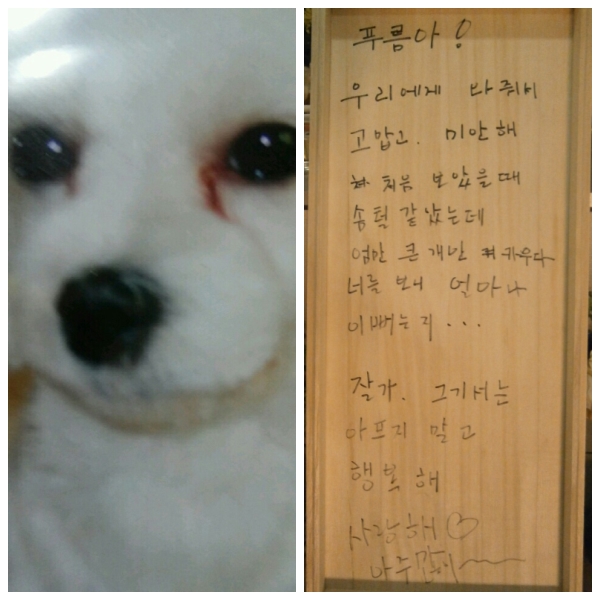 푸름아!
우리에게 와줘서
고맙고. 미안해
처음 보았을때
솜털 같았는데
엄만 큰 개만 키우다
너를 보니 얼마나
이뻤는지...
잘가. 그기서는
아프지 말고
행복해
사랑해♡
아주많이~